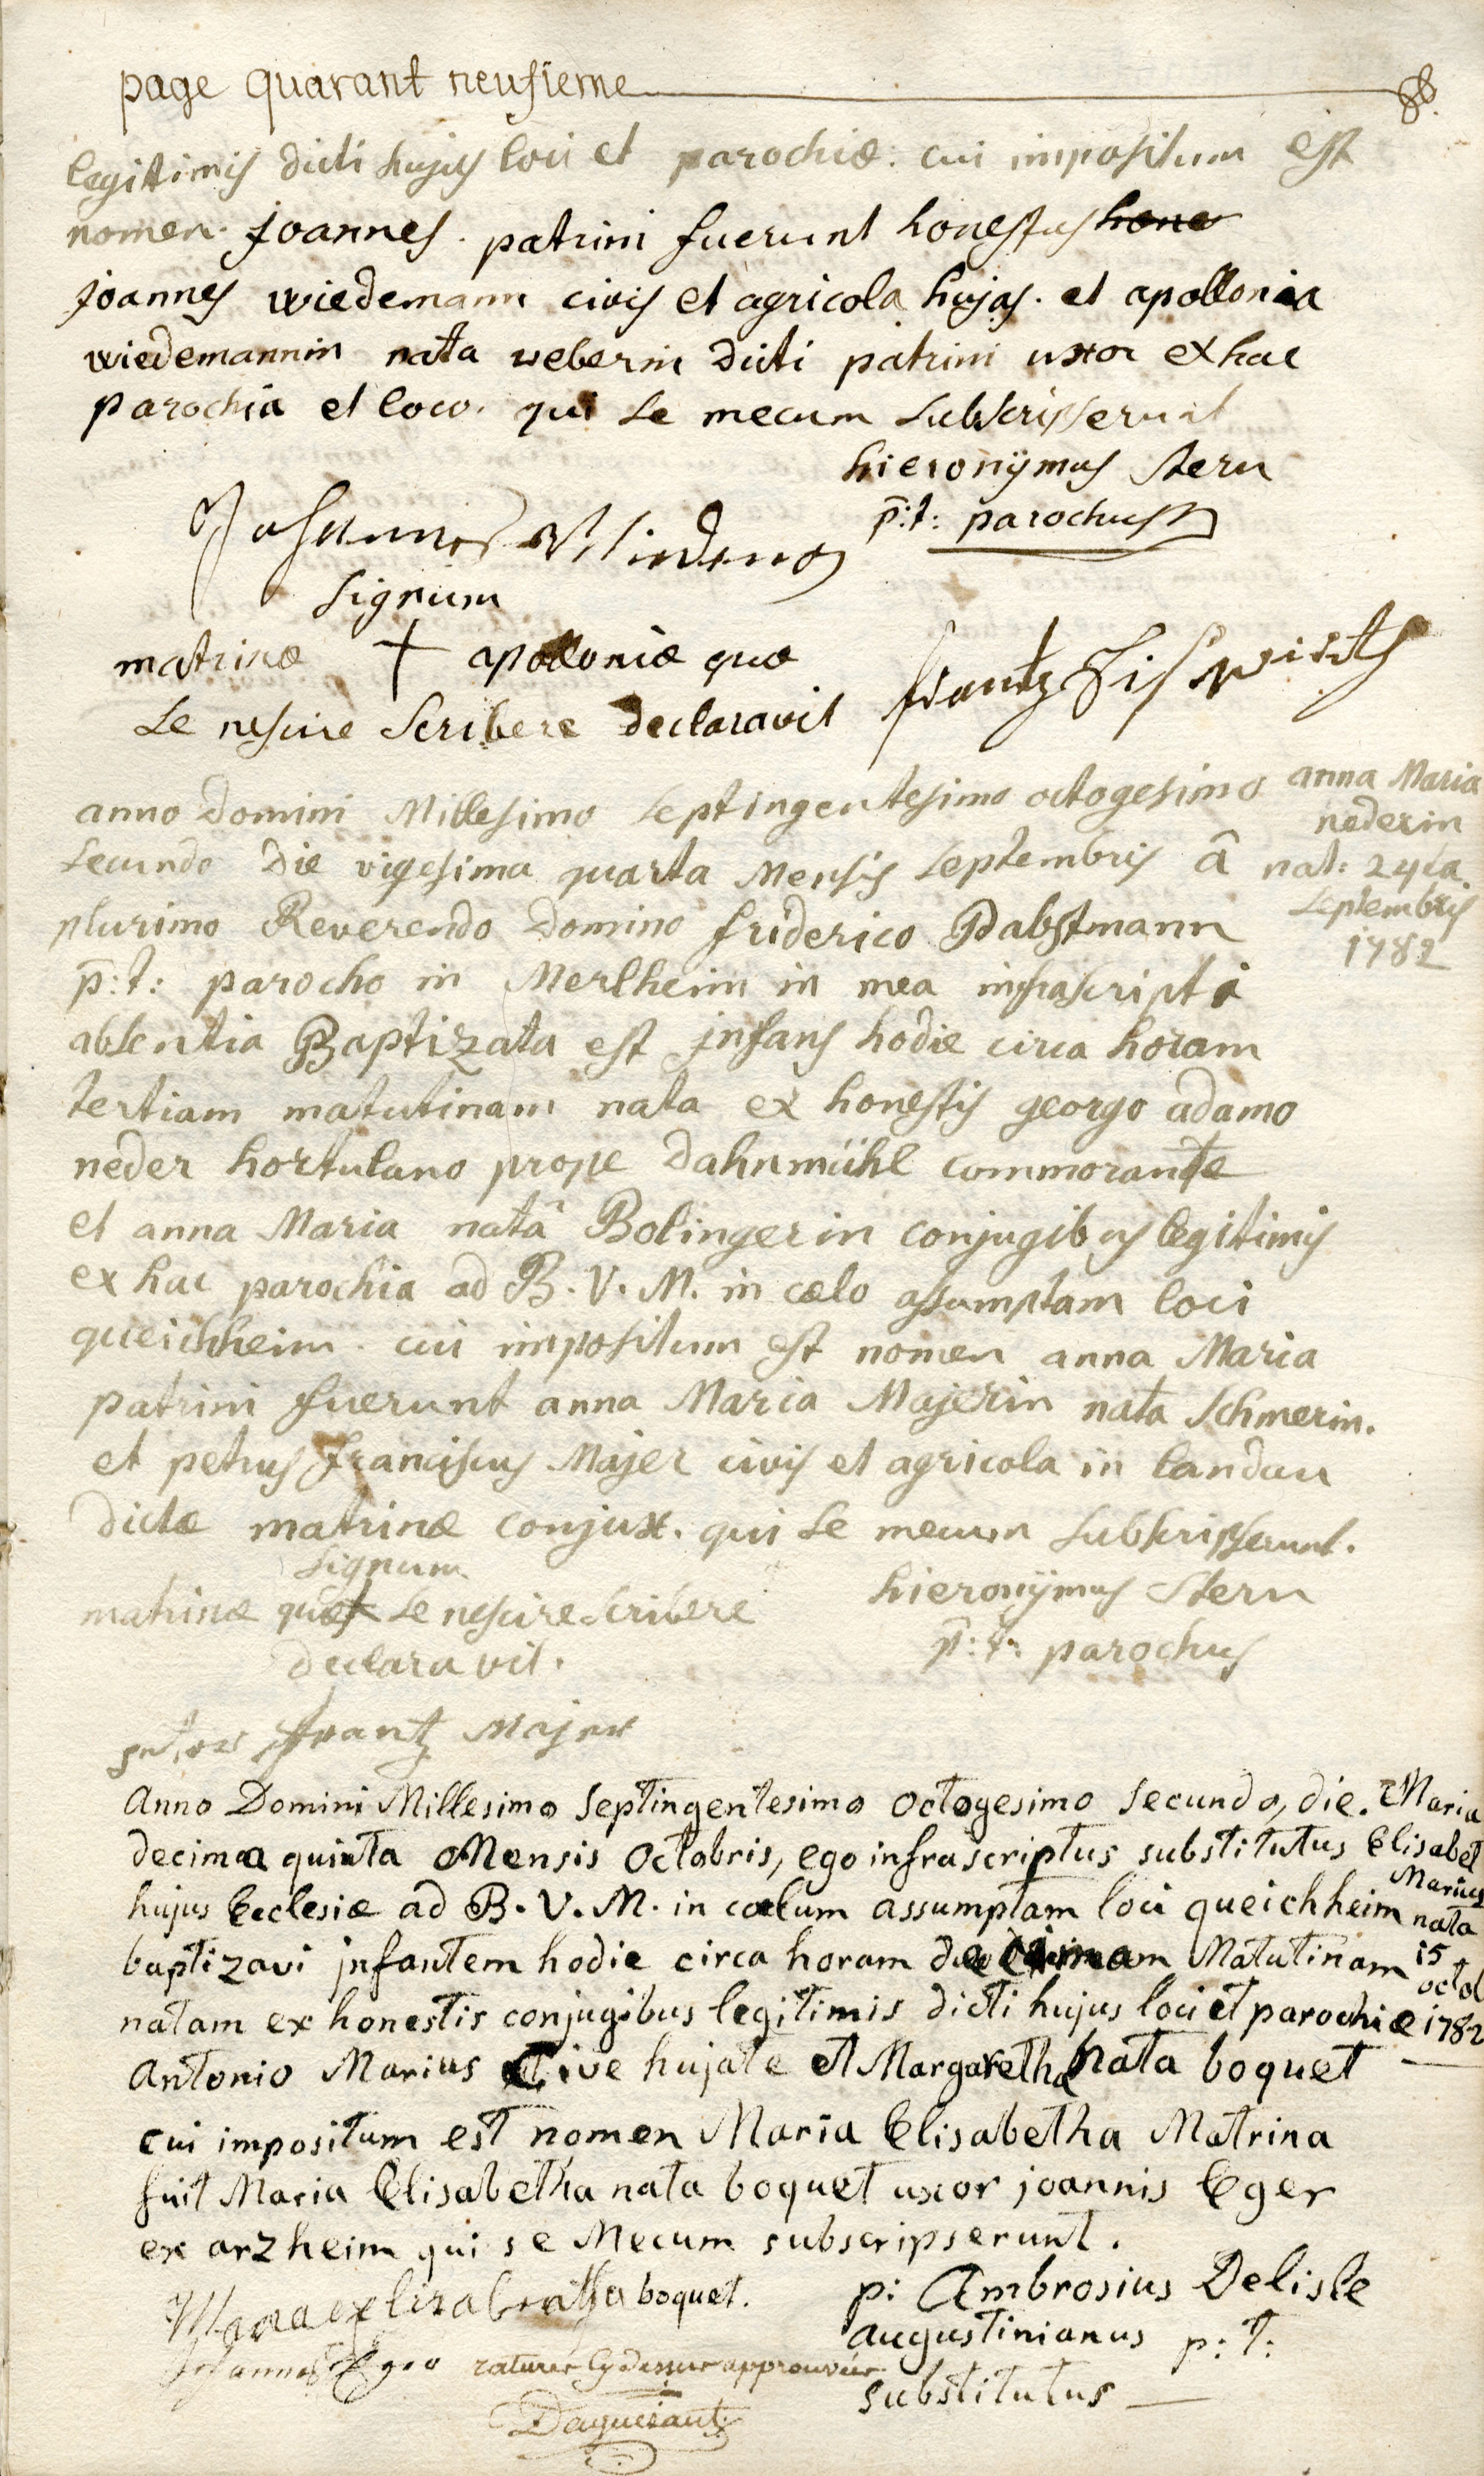 page quarant neufieme
legitimis dicti hujus loci et parochiæ. cui impositum est
nomen. joannes. patrini fuerunt honestus hone
joannes wiedemann civis et agricola hujas. et apollonia
wiedemannin nata weberin dicti patrini uxor ex hac
parochia et loco. qui se mecum subscripserunt
hieronÿmus stern
p:t: parochus
Johannes
signum
matrinæ + apolloniæ quæ
se nescire scribere declaravit
frantz
anno domini Millesimo septingentesimo octogesimo
secundo die vigesima quarta Mensis septembris â
plurimo Reverendo Domino friderico Pabstmann
p:t: parocho in Merlheim in mea infrascripti
absentia Baptizata est jnfans hodie circa horam
tertiam matutinam nata ex honestis georgo adamo
neder hortulano prope dahnmühl commorante
et anna Maria natâ Bolingerin conjugibus legitimis
ex hac parochia ad B. V. M. in cælo assumptam loci
queichheim. cui impositum est nomen anna Maria
patrini fuerunt anna Maria Majerin nata schmerin.
et petrus franciscus Majer civis et agricola in landau
dictæ matrinæ conjux. qui se mecum subscripserunt.
anna Maria
nederin
nat: 24ta
septembris
1782
signum
matrinæ quæ + se nescire scribere
declaravit.
hieronÿmus Stern
p:t: parochus
peter frantz Majer
Anno Domini Millesimo Septingentesimo octogesimo secundo, die.
decima quinta Mensis octobris, ego infrascriptus substitutus
hujus Ecclesiæ ad B. V. M. in cœlum assumptam loci queichheim
baptizavi jnfantem hodie circa horam decimam Matutinam
natam ex honestis conjugibus legitimis dicti hujus loci et parochiæ
Antonio Marius Cive hujate et Margaretha Nata boquet
cui impositum est nomen Maria Elisabetha Matrina
fuit Maria Elisabetha nata boquet uxor joannis Eger
ex arzheim qui se Mecum subscripserunt.
Maria
Elisabet
Marius
nata
15
octob
1782
Maria Elisabeatha boquet.
Johannes Eger
p: Ambrosius Delisle
augustinianus p: t:
substitutus
raturés cy dessus approuvées